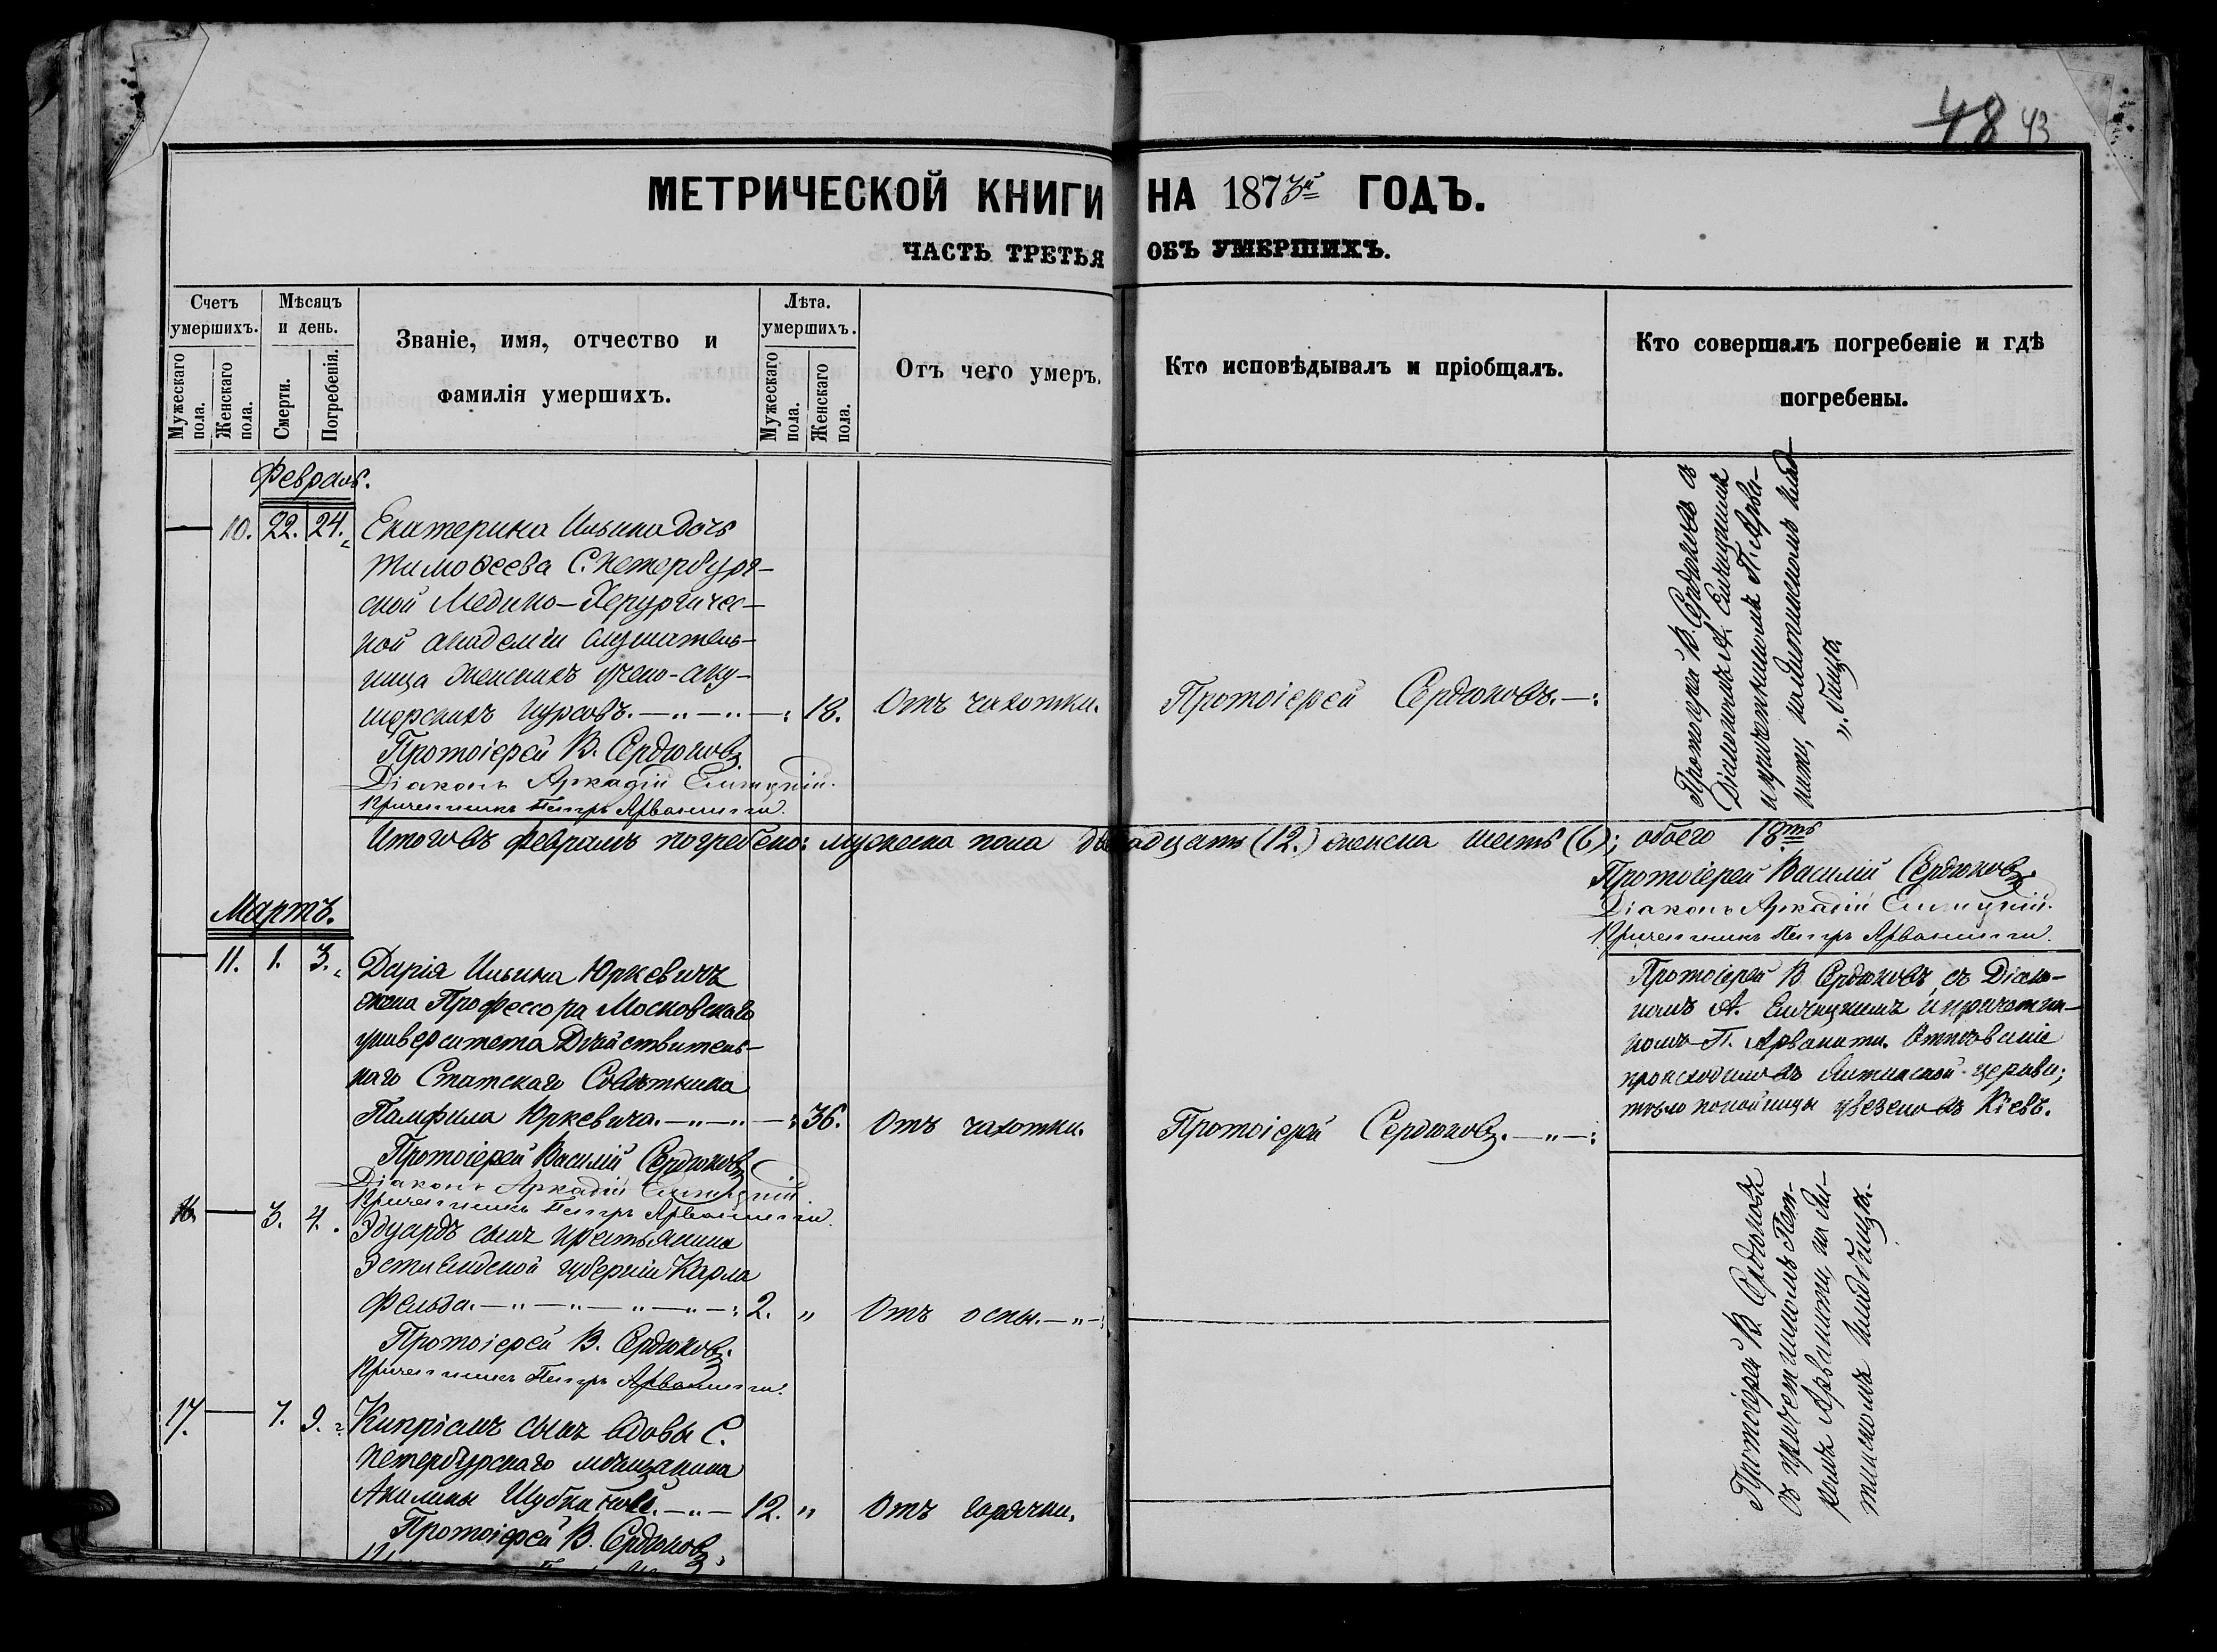 48 43
МЕТРИЧЕСКОЙ КНИГИ НА 1873й ГОДЪ.
ЧАСТЬ ТРЕТЬЯ ОБЪ УМЕРШИХЪ.
Счетъ умершихъ.
Мужескаго пола.
Женскаго пола.
Мѣсяцъ и день.
Смерти.
Погребенія.
Званіе, имя, отчество и
фамилія умершихъ.
Лѣта. умершихъ.
Мужескаго пола.
Женскаго пола.
Отъ чего умеръ.
Кто исповѣдывалъ и пріобщалъ.
Кто совершалъ погребеніе и гдѣ
погребены.
Февраль.
10. 22. 24. Екатерина Ильина дочь
Тимоѳеева С.петербург-
ской Медико-Херургичес-
кой академіи слушатель-
ница женскихъ учено-аку-
шерскихъ курсовъ. 18. Отъ чахотки. Протоіерей Сердюковъ.
Протоіерей В. Сердюковъ.
Діаконъ Аркадій
Причетникъ Петръ Арванити.
Протоіерей В. Сердюковъ съ
Діакономъ А.
и причетникомъ П. Арва-
нити, на клад-
бищѣ
Итого въ февралѣ погребено: мужеска пола двѣнадцать (12.) женска шесть (6); обоего 18.ть
Протоіерей Василій Сердюковъ.
Діаконъ Аркадій
Причетникъ Петръ Арванити.
Мартъ.
11. 1. 3. Дарія Ильина Юркевичъ
жена Профессора Московскаго
университета Дѣйствитель-
наго Статскаго Совѣтника
Памфила Юркевича. 36. Отъ чахотки. Протоіерей Сердюковъ.
Протоіерей Василій Сердюковъ
Діаконъ Аркадій
Причетникъ Петръ Арванити.
Протоіерей В. Сердюковъ, съ Діако-
номъ А. и причетни-
комъ П. Арванити. Отпѣваніе
происходило въ Ялтинской церкви;
тѣло покойницы увезено въ Кіевъ.
16. 3. 4. Эдуардъ сынъ крестьянина
Эстляндской губерніи Карла
Фельда. 2. " Отъ оспы.
Протоіерей В. Сердюковъ.
Причетникъ Петръ Арванити.
17. 7. 9. Кипріанъ сынъ вдовы С.
петербургскаго мѣщанина
Акилины 12. " Отъ горячки.
Протоіерей В. Сердюковъ.
Протоіерей В. Сердюковъ
съ причетникомъ Пет-
ромъ Арванити, на Ял-
тинскомъ кладбищѣ.